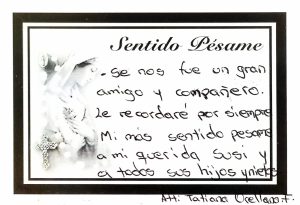 Sentido Pésame
- Se nos fue un gran
amigo y compañero.
Le recordaré por siempre
Mi más sentido pesame
a mi querida Susi y
a todos sus hijos y nietos
Atti: Tatiana Orellana F.